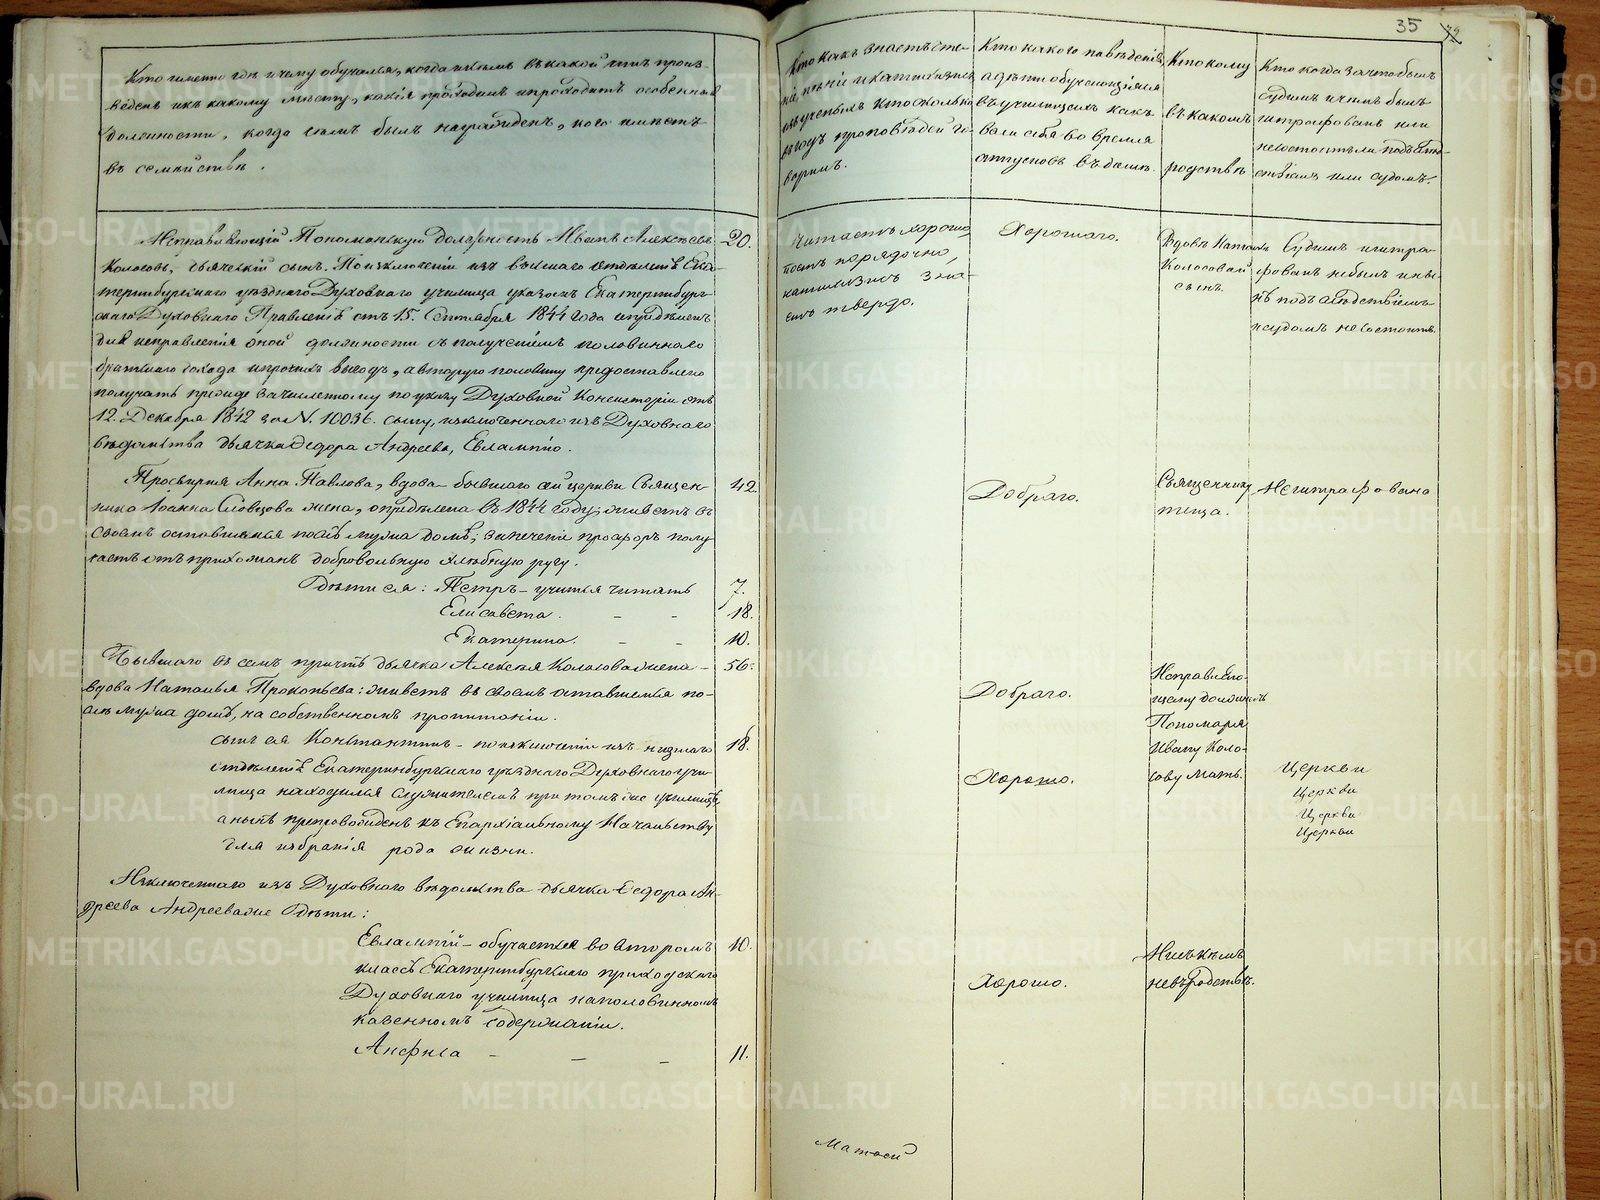 35
Кто именно гдѣ и чему обучался, когда и кѣмъ въ какой чинъ произ-
веденъ и къ какому мѣсту, какія проходилъ и проходитъ особенныя
должности, когда чѣмъ былъ награжденъ, кого имѣетъ
въ семействѣ.
Кто какъ знаетъ чте-
ніе, пѣніе и катихизисъ
изъ ученыхъ кто сколько
въ годъ проповѣдей го-
ворилъ.
Кто какого поведенія,
а дѣти обучающіяся
въ училищахъ какъ
вели себя во время
отпусковъ въ домъ.
Кто кому
въ какомъ
родствѣ
Кто когда за что былъ
судимъ и чѣмъ былъ
штрафованъ или
не состоитъ ли подъ слѣд-
ствіемъ или судомъ.
Исправляющій Пономарскую должность Иванъ Алексѣевъ
Колосовъ, дьяческій сынъ. По исключеніи изъ высшаго отдѣленія Ека-
теринбургскаго уѣзднаго Духовнаго училища указомъ Екатеринбург-
скаго Духовнаго Правленія отъ 15. Сентября 1844 года опредѣленъ
для исправленія оной должности съ полученіемъ половиннаго
братскаго дохода и прочихъ выгодъ, а вторую половину предоставлено
получать прежде зачисленному по указу Духовной Консисторіи отъ
12. Декабря 1842 за N. 10036. сыну, исключеннаго изъ Духовнаго
вѣдомства дьячка Ѳедора Андреева, Евлампію.
20.
Читаетъ хорошо,
поетъ порядочно,
катихизисъ зна-
етъ твердо.
Хорошаго.
Вдовы Натальи
Колосовой
сынъ.
Судимъ и штра-
фованъ небылъ и ны-
нѣ подъ слѣдствіемъ
и судомъ не состоитъ.
Просвирня Анна Павлова, вдова бывшаго сей церкви Священ-
ника Іоанна Словцова жена, опредѣлена въ 1844 году; живетъ въ
своемъ оставшемся послѣ мужа домѣ; за печеніе просфоръ полу-
чаетъ отъ прихожанъ добровольную хлѣбную ругу.
42.
Добраго.
Священнику
теща.
Не штрафована
Дѣти ея: Петръ – учится читать 7.
Елисавета. – – 18.
Екатерина. – – 10.
Бывшаго въ семъ причтѣ дьячка Алексѣя Колосова жена – 56.
вдова Наталья Прокопьева: живетъ въ своемъ оставшемся по-
слѣ мужа домѣ, на собственномъ пропитаніи.
Добраго.
Исправляю-
щему должность
Пономаря
Ивану Коло-
сову мать.
сынъ ея Константинъ – по исключеніи изъ низшаго 18.
отдѣленія Екатеринбургскаго уѣзднаго Духовнаго учи-
лища находился служителемъ при томъ же училищѣ,
а нынѣ препровожденъ къ Епархіальному Начальству
для избранія рода жизни.
Хорошо.
Церкви
Церкви
Церкви
Церкви
Изключеннаго изъ Духовнаго вѣдомства дьячка Ѳедора Ан-
дреева Андреева же Дѣти:
Евлампій – обучается во второмъ 10.
классѣ Екатеринбургскаго приходскаго
Духовнаго училища на половинномъ
казенномъ содержаніи.
Хорошо.
Ни съ кѣмъ
не въ родствѣ.
Анфиса – – – 11.
METRIKI.GASO-URAL.RU